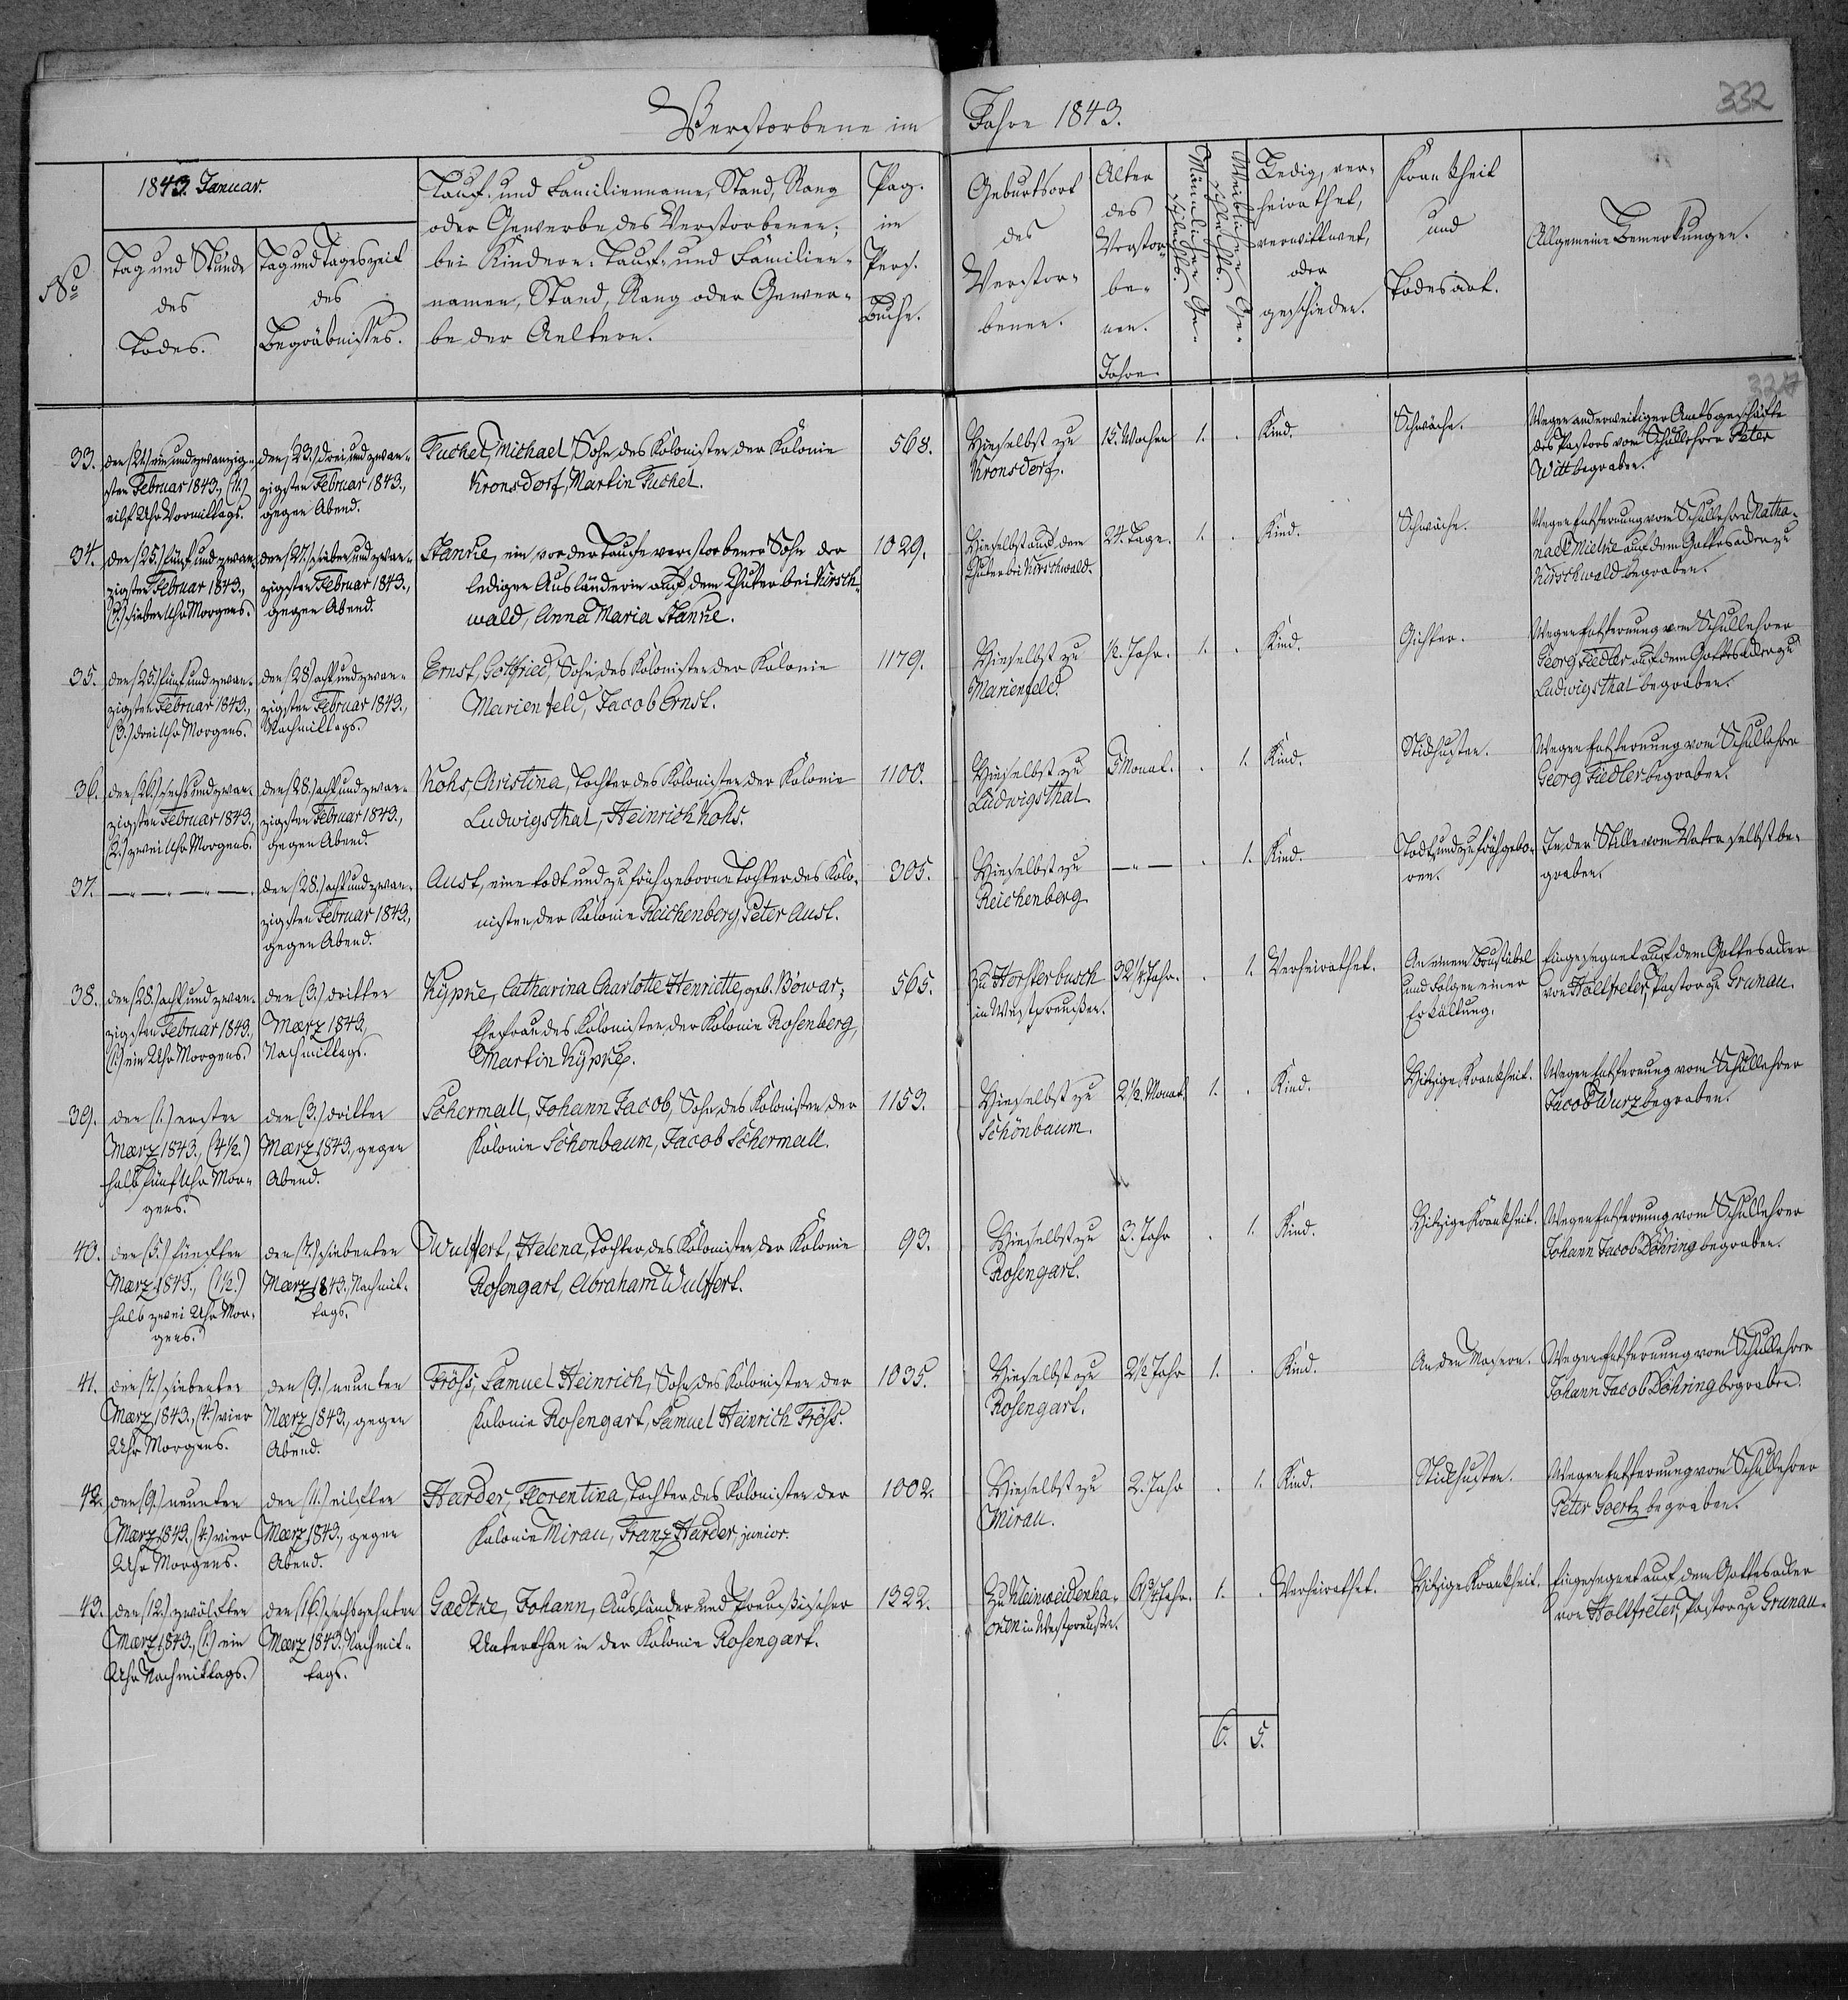 Verstorbene im Jahre 1843.
332
No
1843. Januar.
Tag und Stunde
des
Todes.
Tag und Tageszeit
des
Begräbnisses.
Tauf- und Familienname, Stand, Rang
oder Gewerbe des Verstorbenen;
bei Kindern: Tauf- und Familien-
namen, Stand, Rang oder Gewer-
be der Aeltern.
Pag.
im
Pers.
Buche.
Geburtsort
des
Verstor-
benen.
Alter
des
Verstor-
be-
nen.
Jahre.
Männlichen Ge-
schlechts.
Weiblichen Ge-
schlechts.
Ledig, ver-
heirathet,
verwittwet,
oder
geschieden.
Krankheit
und
Todesart.
Allgemeine Bemerkungen.
33.
den (21.) ein und zwanzig-
sten Februar 1843., (11.)
eilf Uhr Vormittags.
den (23.) drei und zwan-
zigsten Februar 1843.,
gegen Abend.
Tuchel, Michael, Sohn des Kolonisten der Kolonie
Kronsdorf, Martin Tuchel.
568.
Hieselbst zu
Kronsdorf.
15. Wochen
1.
.
Kind.
Schwäche.
Wegen anderweitiger Amtsgeschäfte
des Pastors vom Schullehrer Peter
Witt begraben.
34.
den (25.) fünf und zwan-
zigsten Februar 1843.,
(7.) sieben Uhr Morgens.
den (27.) sieben und zwan-
zigsten Februar 1843.,
gegen Abend.
Stanke, ein vor der Taufe verstorbener Sohn der
ledigen Ausländerin auf dem Chutor bei Kirsch-
wald, Anna Maria Stanke.
1029.
Hieselbst auf dem
Chutor bei Kirschwald.
24. Tage.
1.
.
Kind.
Schwäche.
Wegen Entfernung vom Schullehrer Natha-
nael Mielke auf dem Gottesacker zu
Kirschwald begraben.
35.
den (25.) fünf und zwan-
zigsten Februar 1843.,
(3.) drei Uhr Morgens.
den (28.) acht und zwan-
zigsten Februar 1843.,
Nachmittags.
Ernst, Gottfried, Sohn des Kolonisten der Kolonie
Marienfeld, Jacob Ernst.
1179.
Hieselbst zu
Marienfeld.
1/2. Jahr.
1.
.
Kind.
Gichter.
Wegen Entfernung vom Schullehrer
Georg Fiedler auf dem Gottesacker zu
Ludwigsthal begraben.
36.
den (26.) sechs und zwan-
zigsten Februar 1843.,
(2.) zwei Uhr Morgens.
den (28.) acht und zwan-
zigsten Februar 1843.,
gegen Abend.
Kohs, Christina, Tochter des Kolonisten der Kolonie
Ludwigsthal, Heinrich Kohs.
1100.
Hieselbst zu
Ludwigsthal.
5 Monat.
.
1.
Kind.
Stickhusten.
Wegen Entfernung vom Schullehrer
Georg Fiedler begraben.
37.
— " — " — " — .
den (28.) acht und zwan-
zigsten Februar 1843.,
gegen Abend.
Aust, eine todt und zu früh geborene Tochter des Kolo-
nisten der Kolonie Reichenberg, Peter Aust.
305.
Hieselbst zu
Reichenberg.
— " —
.
1.
Kind.
Todt und zu früh gebo-
ren.
In der Stille vom Vater selbst be-
graben.
38.
den (28.) acht und zwan-
zigsten Februar 1843.,
(1.) ein Uhr Morgens.
den (3.) dritten
Maerz 1843.,
Nachmittags.
Kypke, Catharina Charlotte Henriette, geb. Böwar;
Ehefrau des Kolonisten der Kolonie Rosenberg,
Martin Kypke.
565.
Zu Horsterbusch
in Westpreußen.
32 1/4. Jahr.
.
1.
Verheirathet.
An einem Brustübel
und Folgen einer
Erkältung.
Eingesegnet auf dem Gottesacker
von Holtfreter, Pastor zu Grunau.
39.
den (1.) ersten
Maerz 1843., (4 1/2.)
halb fünf Uhr Mor-
gens.
den (3.) dritten
Maerz 1843., gegen
Abend.
Schermall, Johann Jacob, Sohn des Kolonisten der
Kolonie Schönbaum, Jacob Schermall.
1153.
Hieselbst zu
Schönbaum.
2 1/2. Monat.
1.
.
Kind.
Hitzige Krankheit.
Wegen Entfernung vom Schullehrer
Jacob Wurz begraben.
40.
den (5.) fünften
Maerz 1843., (1 1/2.)
halb zwei Uhr Mor-
gens.
den (7.) siebenten
Maerz 1843. Nachmit-
tags.
Wulffert, Helena, Tochter des Kolonisten der Kolonie
Rosengart, Abraham Wulffert.
93.
Hieselbst zu
Rosengart.
3. Jahr
.
1.
Kind.
Hitzige Krankheit.
Wegen Entfernung vom Schullehrer
Johann Jacob Döhring begraben.
41.
den (7.) siebenten
Maerz 1843., (4.) vier
Uhr Morgens.
den (9.) neunten
Maerz 1843., gegen
Abend.
Fröhs, Samuel Heinrich, Sohn des Kolonisten der
Kolonie Rosengart, Samuel Heinrich Fröhs.
1035.
Hieselbst zu
Rosengart.
2 1/2 Jahr
1.
.
Kind.
An den Masern.
Wegen Entfernung vom Schullehrer
Johann Jacob Döhring begraben.
42.
den (9.) neunten
Maerz 1843., (4.) vier
Uhr Morgens.
den (11.) eilften
Maerz 1843., gegen
Abend.
Harder, Florentina, Tochter des Kolonisten der
Kolonie Mirau, Franz Harder, junior.
1002.
Hieselbst zu
Mirau.
2. Jahr
.
1.
Kind.
Stickhusten.
Wegen Entfernung vom Schullehrer
Peter Goertz begraben.
43.
den (12.) zwölften
Maerz 1843., (1.) ein
Uhr Nachmittags.
den (16.) sechszehnten
Maerz 1843. Nachmit-
tags.
Gaedtke, Johann, Ausländer und Preußischer
Unterthan in der Kolonie Rosengart.
1322.
in Westpreußen.
1.
.
Verheirathet.
Hitzige Krankheit.
Eingesegnet auf dem Gottesacker
von Holtfreter, Pastor zu Grunau.
6.
5.